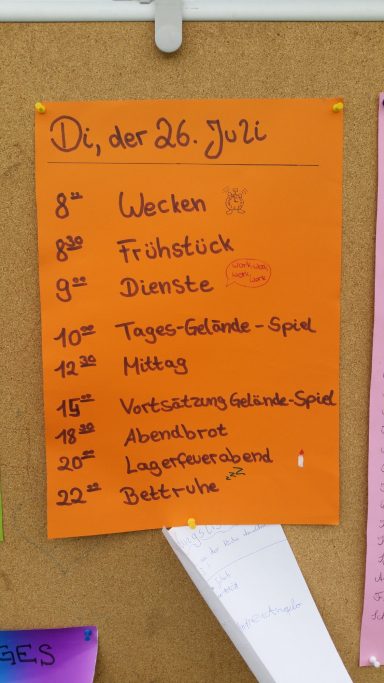 Di, der 26. Juli
8⁰⁰ Wecken
8³⁰ Frühstück
9⁰⁰ Dienste
work, work, work, work
10⁰⁰ Tages-Gelände-Spiel
12³⁰ Mittag
15⁰⁰ Vortsätzung Gelände-Spiel
18³⁰ Abendbrot
20⁰⁰ Lagerfeuerabend
22⁰⁰ Bettruhe
zzz
GES